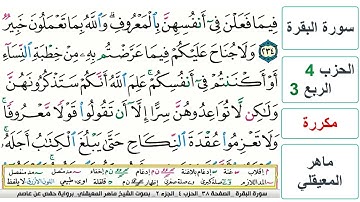 سورة البقرة
الحزب 4
الربع 3
مكررة
ماهر
المعيقلي
فِيمَا فَعَلْنَ فِىٓ أَنفُسِهِنَّ بِٱلْمَعْرُوفِ ۗ وَٱللَّهُ بِمَا تَعْمَلُونَ خَبِيرٌ
٢٣٤ وَلَا جُنَاحَ عَلَيْكُمْ فِيمَا عَرَّضْتُم بِهِۦ مِنْ خِطْبَةِ ٱلنِّسَآءِ
أَوْ أَكْنَنتُمْ فِىٓ أَنفُسِكُمْ ۚ عَلِمَ ٱللَّهُ أَنَّكُمْ سَتَذْكُرُونَهُنَّ
وَلَٰكِن لَّا تُوَاعِدُوهُنَّ سِرًّا إِلَّآ أَن تَقُولُوا۟ قَوْلًا مَّعْرُوفًا ۚ
وَلَا تَعْزِمُوا۟ عُقْدَةَ ٱلنِّكَاحِ حَتَّىٰ يَبْلُغَ ٱلْكِتَٰبُ أَجَلَهُۥ ۚ
سورة البقرة - الصفحة ٣٨ - الحزب ٤ - الجزء ٢ - بصوت الشيخ ماهر المعيقلي - برواية حفص عن عاصم